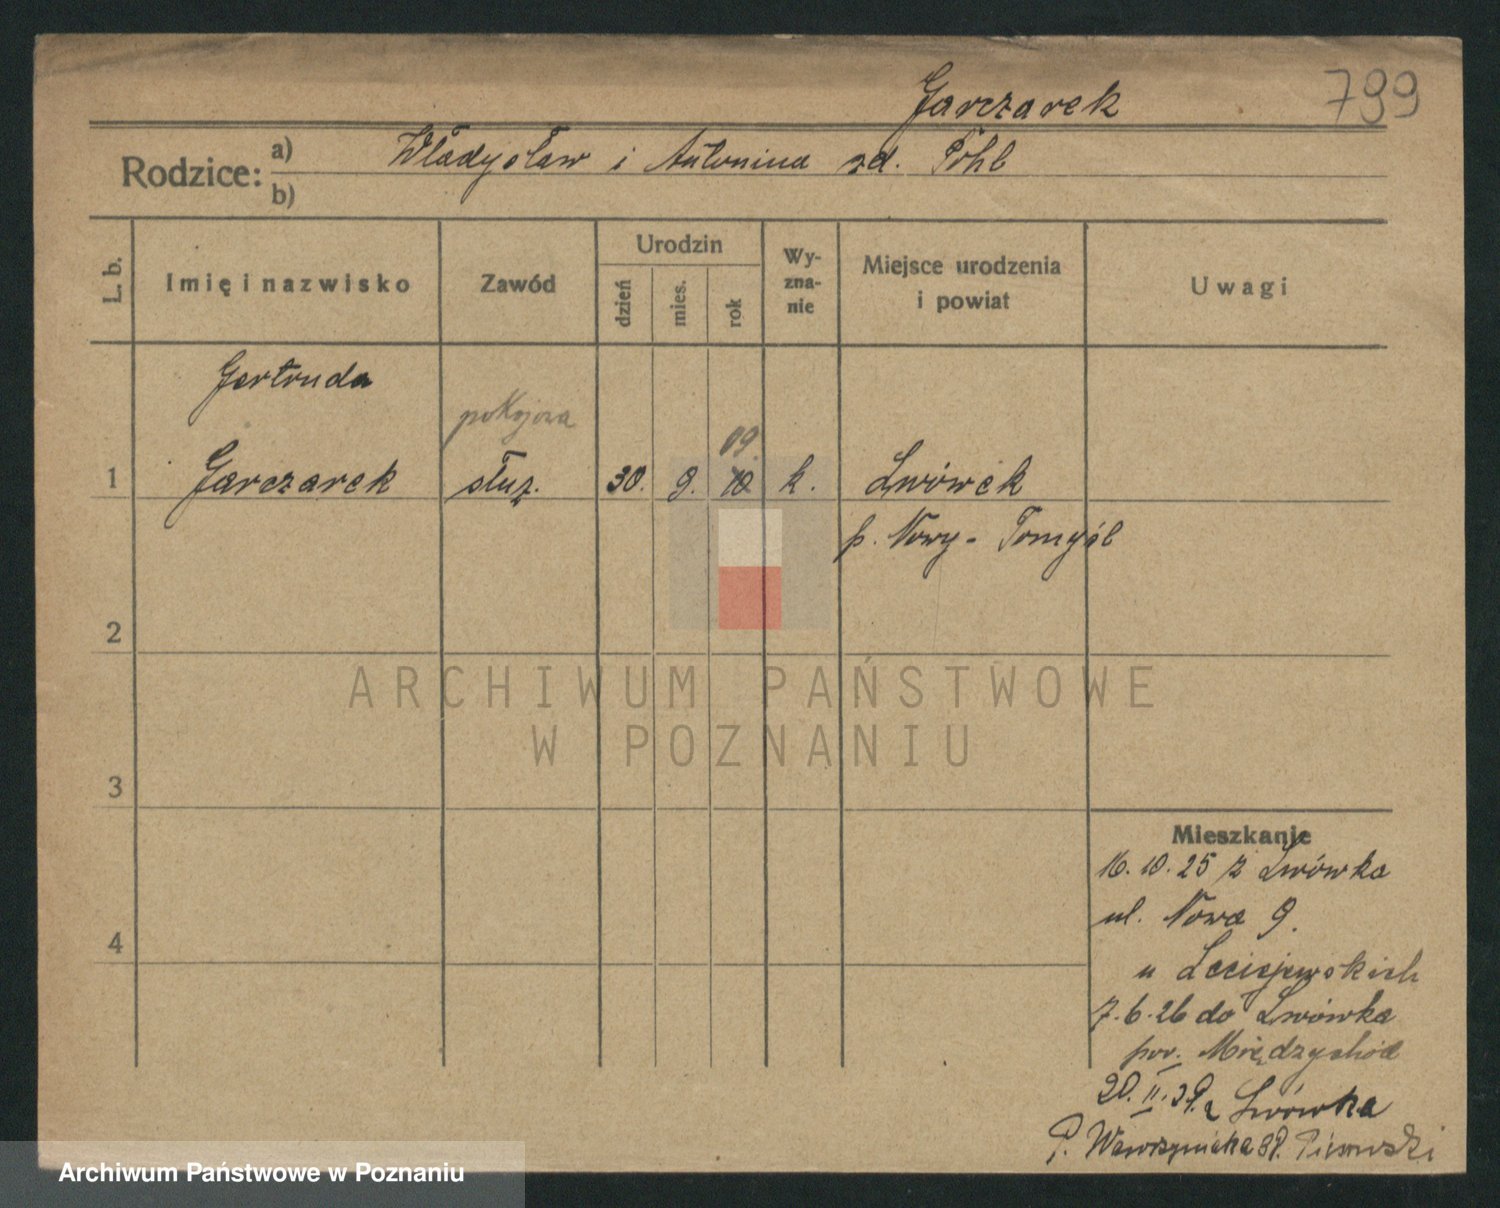 Garczarek 799
Rodzice: a) Władysław i Antonina zd. Pohl
b)
L. b. Imię i nazwisko Zawód Urodzin dzień mies. rok Wy-zna-nie Miejsce urodzenia i powiat Uwagi
Gertruda
pokojowa
09.
1 Garczarek służ. 30. 9. 10 k. Lwówek
p. Nowy-Tomyśl
2
3
4
Mieszkanie
16.10.25 z Lwówka
ul. Nowa 9.
u Leciejewskich
7.6.26 do Lwówka
pow. Międzychód
20.II.39. z Lwówka
ARCHIWUM PAŃSTWOWE
W POZNANIU
Archiwum Państwowe w Poznaniu